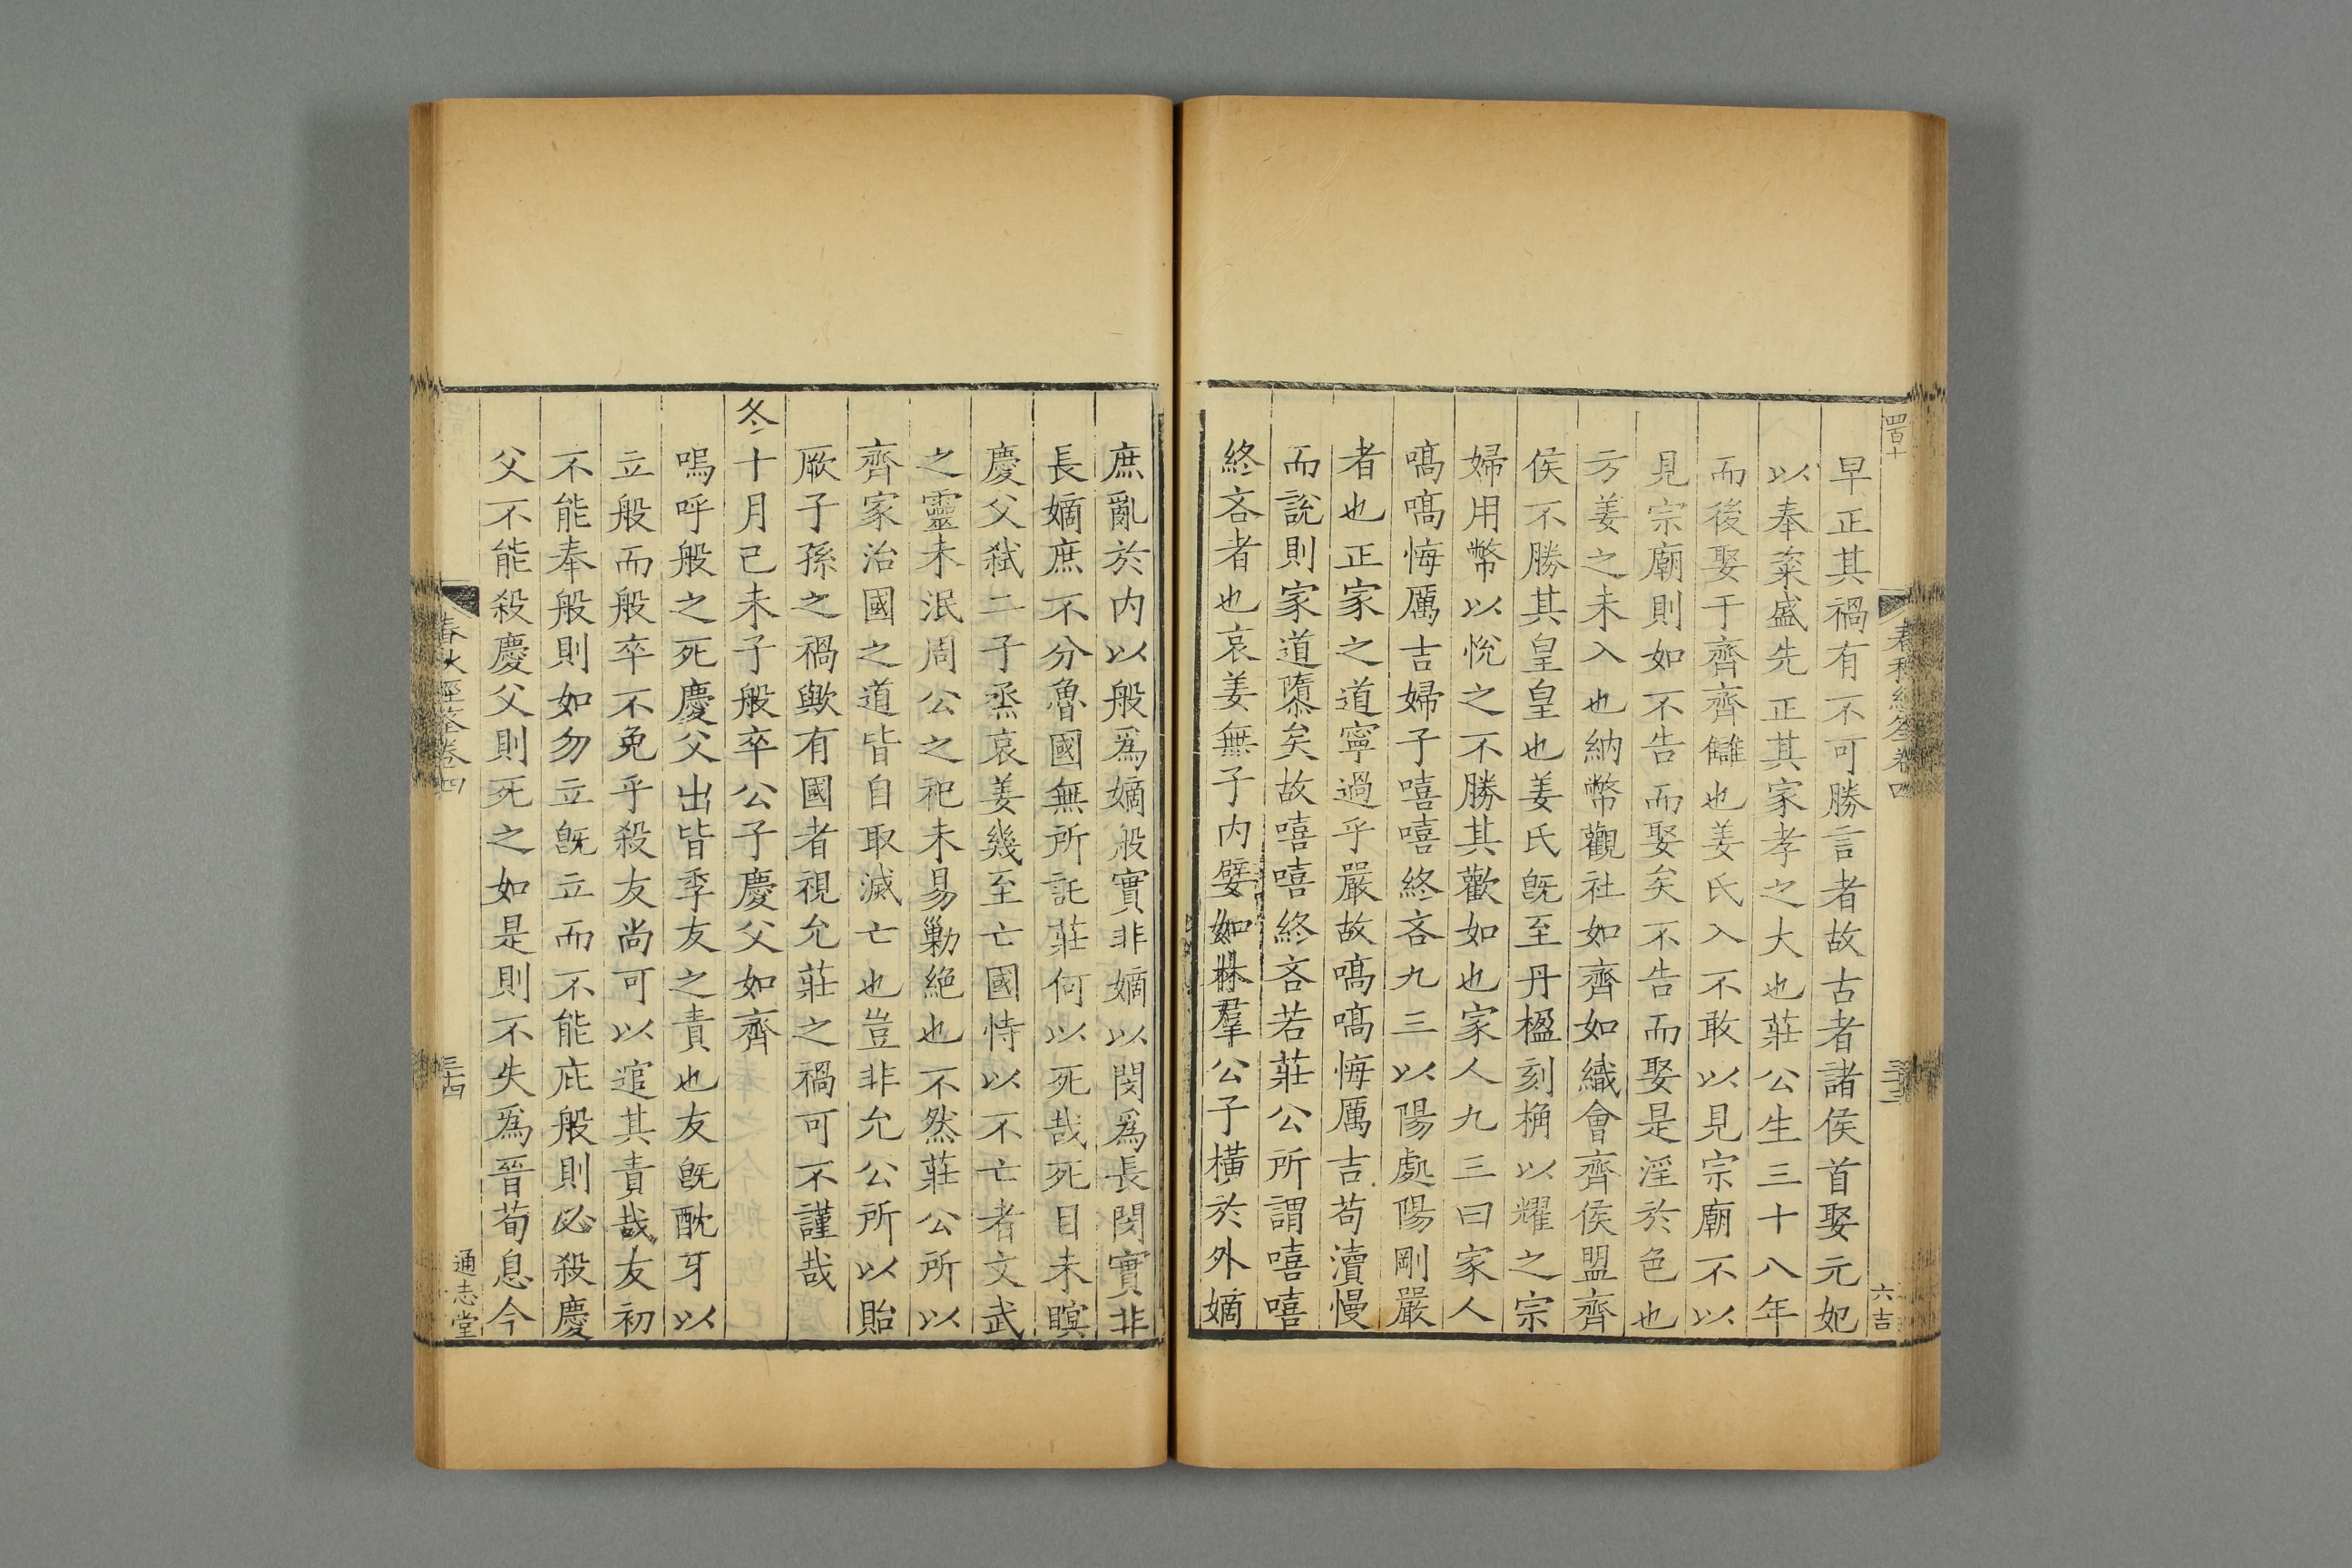 早正其禍有不可勝言者故古者諸侯首娶元妃
以奉粢盛先正其家孝之大也莊公生三十八年
而後娶于齊齊讎也姜氏入不敢以見宗廟不以
見宗廟則如不告而娶矣不告而娶是淫於色也
方姜之未入也納幣觀社如齊如織會齊侯盟齊
侯不勝其皇皇也姜氏旣至丹楹刻桷以耀之宗
婦用幣以悅之不勝其歡如也家人九三曰家人
嗃嗃悔厲吉婦子嘻嘻終吝九三以陽處陽剛嚴
者也正家之道寧過乎嚴故嗃嗃悔厲吉苟瀆慢
而說則家道隳矣故嘻嘻終吝若莊公所謂嘻嘻
終吝者也哀姜無子内嬖如林羣公子橫於外嫡
春秋經筌卷四
六吉
庶亂於内以般爲嫡般實非嫡以閔爲長閔實非
長嫡庶不分魯國無所託莊何以死哉死目未瞑
慶父弑二子烝哀姜幾至亡國恃以不亡者文武
之靈未泯周公之祀未易勦絕也不然莊公所以
齊家治國之道皆自取滅亡也豈非允公所以貽
厥子孫之禍歟有國者視允莊之禍可不謹哉
冬十月己未子般卒公子慶父如齊
嗚呼般之死慶父出皆季友之責也友旣酖牙以
立般而般卒不免乎殺友尚可以逭其責哉友初
不能奉般則如勿立旣立而不能庇般則必殺慶
父不能殺慶父則死之如是則不失爲晉荀息今
春秋經筌卷四
三四
通志堂